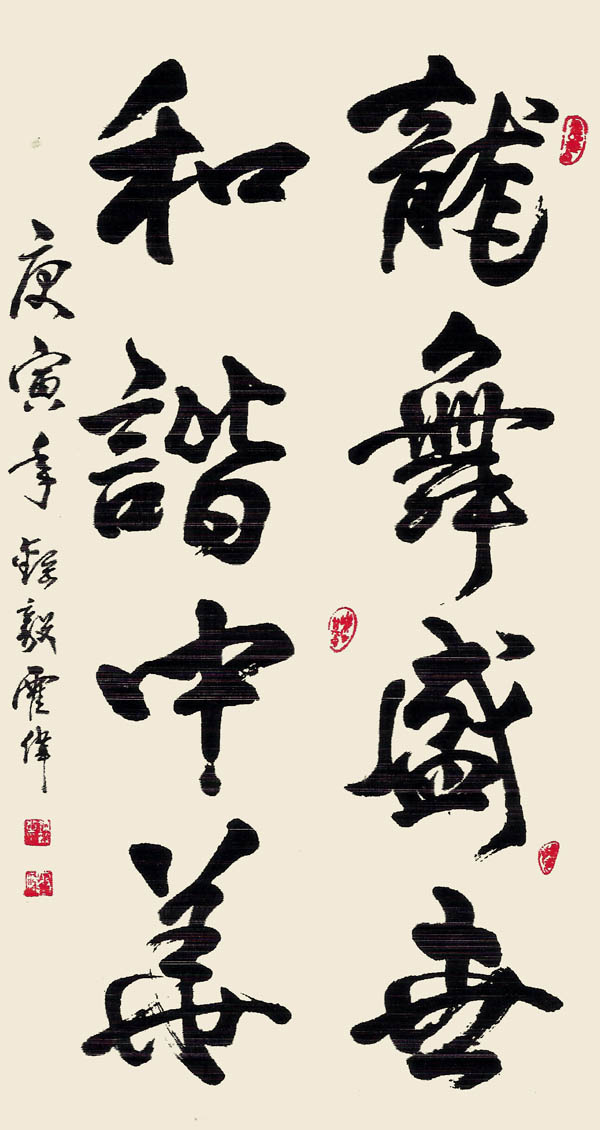 龍舞盛世
和諧中華
庚寅年 毅 偉